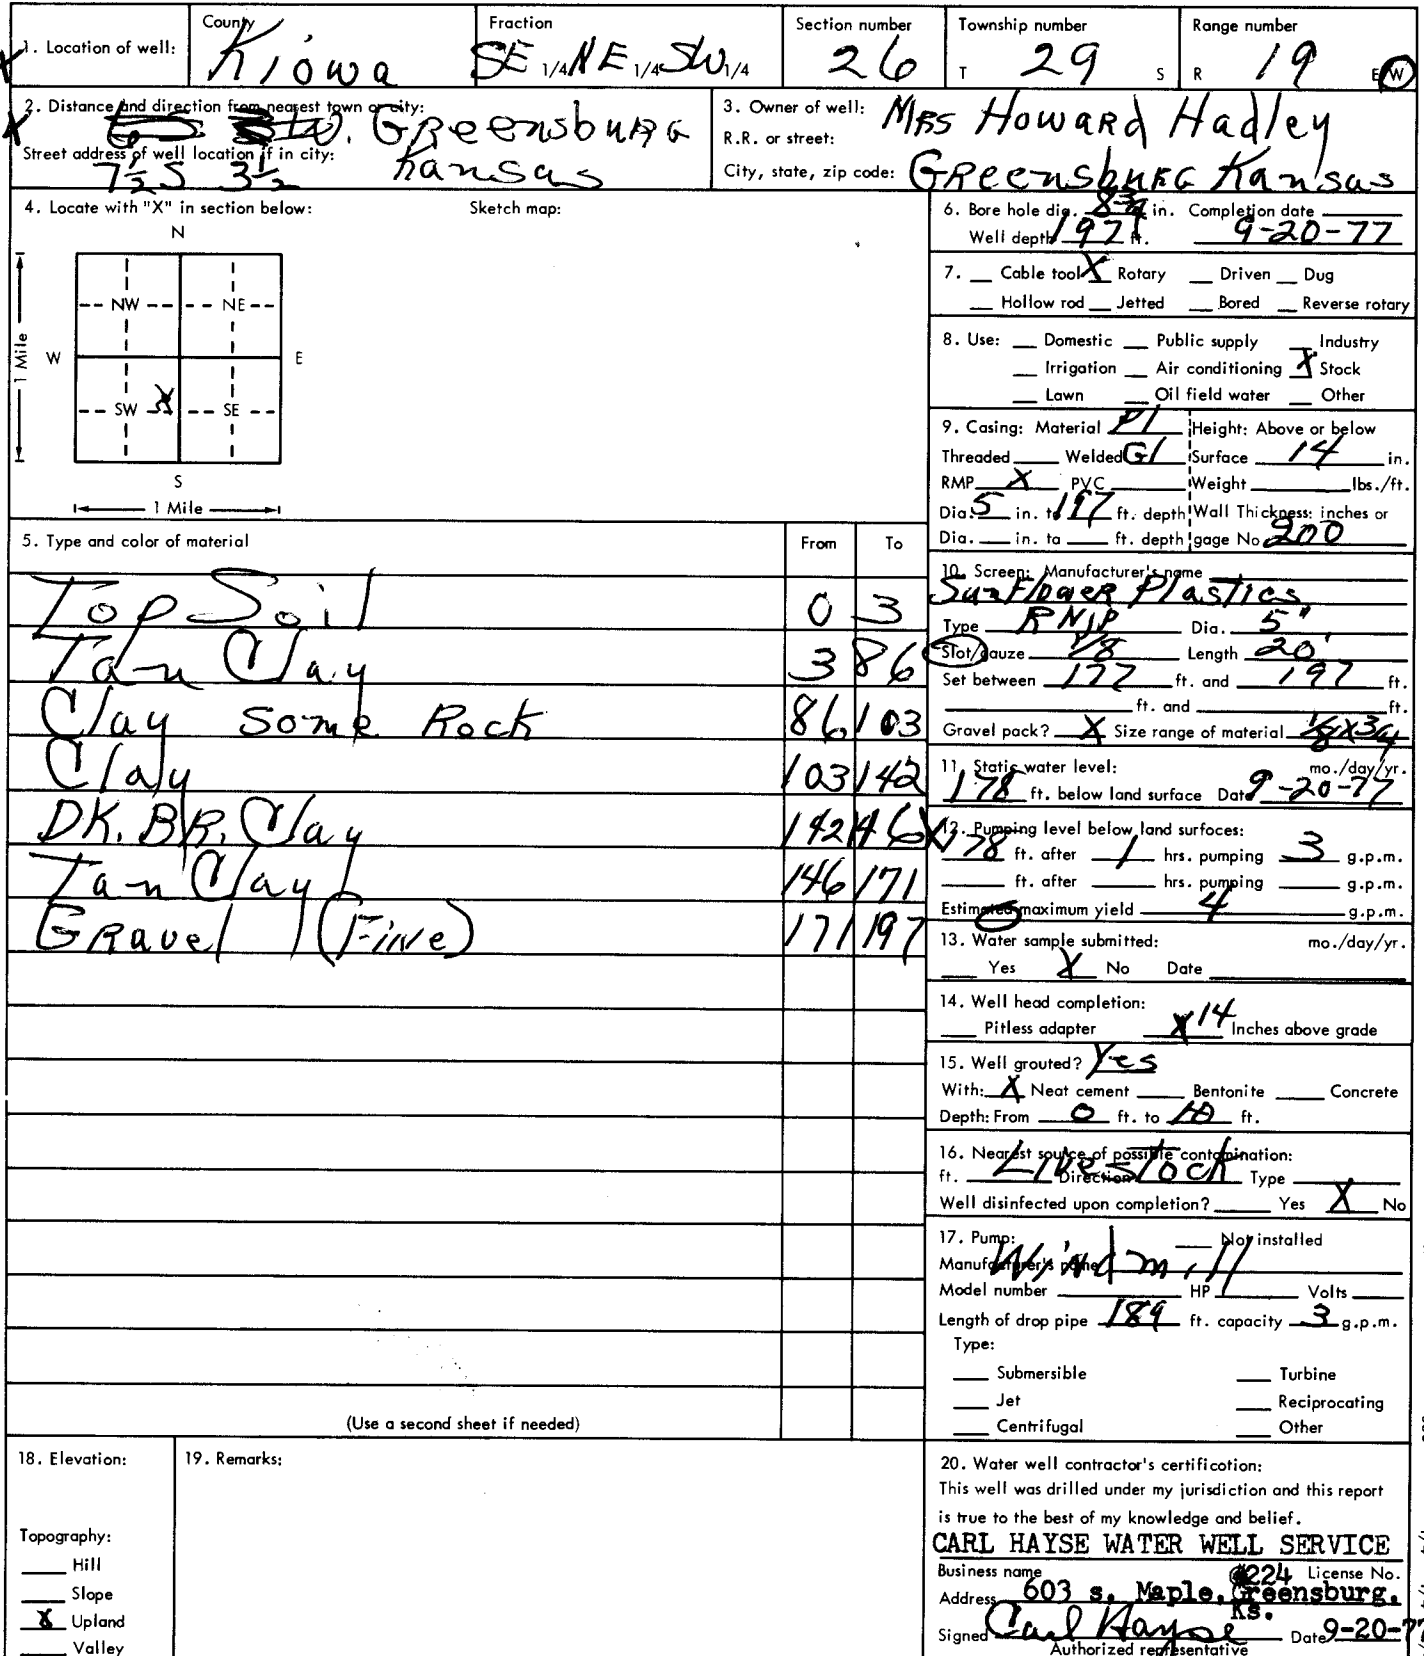 1. Location of well: County Kiowa Fraction SE 1/4 NE 1/4 SW 1/4 Section number 26 Township number T 29 S Range number R 19 E W
2. Distance and direction from nearest town or city: Greensburg
Street address of well location if in city: 7½ S 3½ Kansas
3. Owner of well: Mrs Howard Hadley
R.R. or street:
City, state, zip code: Greensburg Kansas
4. Locate with "X" in section below: Sketch map:
N
NW NE
W E
1 Mile
SW X SE
S
1 Mile
5. Type and color of material From To
Top Soil 0 3
Tan Clay 3 86
Clay some Rock 86 103
Clay 103 142
DK. BR. Clay 142 146
Tan Clay 146 171
Gravel (Fine) 171 197
(Use a second sheet if needed)
6. Bore hole dia. 8¾ in. Completion date
Well depth 197 ft. 9-20-77
7. Cable tool X Rotary Driven Dug
Hollow rod Jetted Bored Reverse rotary
8. Use: Domestic Public supply Industry
Irrigation Air conditioning X Stock
Lawn Oil field water Other
9. Casing: Material Pl Height: Above or below
Threaded Welded Gl Surface 14 in.
RMP X PVC Weight lbs./ft.
Dia. 5 in. to 197 ft. depth Wall Thickness: inches or
Dia. in. to ft. depth gage No 200
10. Screen: Manufacturer's name
Sunflower Plastics
Type RMP Dia. 5"
Slot/gauze 1/8 Length 20'
Set between 177 ft. and 197 ft.
ft. and ft.
Gravel pack? X Size range of material 1/8 x 3/4
11. Static water level: mo./day/yr.
178 ft. below land surface Date 9-20-77
12. Pumping level below land surfaces:
178 ft. after 1 hrs. pumping 3 g.p.m.
ft. after hrs. pumping g.p.m.
Estimated maximum yield 4 g.p.m.
13. Water sample submitted: mo./day/yr.
Yes X No Date
14. Well head completion:
Pitless adapter X 14 Inches above grade
15. Well grouted? Yes
With: X Neat cement Bentonite Concrete
Depth: From 0 ft. to 10 ft.
16. Nearest source of possible contamination:
ft. Livestock Direction Type
Well disinfected upon completion? Yes X No
17. Pump: Not installed
Manufacturer's name Windmill
Model number HP Volts
Length of drop pipe 189 ft. capacity 3 g.p.m.
Type:
Submersible Turbine
Jet Reciprocating
Centrifugal Other
18. Elevation:
Topography:
Hill
Slope
X Upland
Valley
19. Remarks:
20. Water well contractor's certification:
This well was drilled under my jurisdiction and this report
is true to the best of my knowledge and belief.
CARL HAYSE WATER WELL SERVICE
Business name 224 License No.
Address 603 s. Maple, Greensburg,
Ks.
Signed Carl Hayse Date 9-20-77
Authorized representative